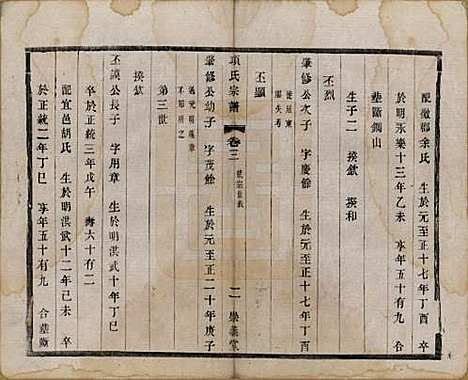 配徽鄉余氏　生於元至正十七年丁酉　卒
於明永樂十三年乙未　享年五十有九　合
墓斷獨山
生子二　揆欽　揆和
丕烈
肇修公次子　字慶餘　生於元至正十七年丁酉
後運東
闕失考
丕顯
項氏宗譜　卷三　二　樂義堂
肇修公幼子　字茂餘　生於元至正二十年庚子
不知所之
第三世
揆欽
丕謨公長子　字用章　生於明洪武十年丁巳
卒於正統三年戊午　壽六十有二
配宜邑胡氏　生於明洪武十二年己未　卒
於正統二年丁巳　享年五十有九　合墓斷